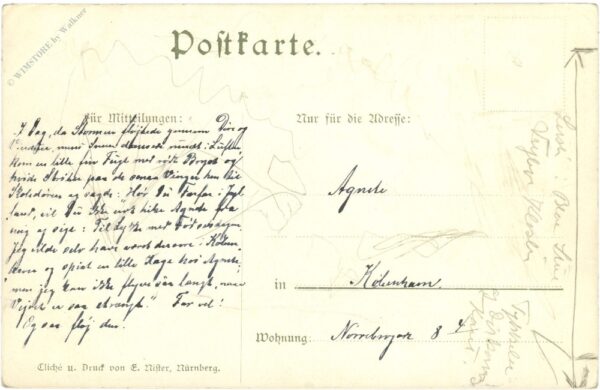 © WIMSTORE by Walkner
Postkarte.
Für Mitteilungen:
Nur für die Adresse:
I Dag, da Stormen fløjtede gennem Dør og
Vinduer, mens Sneen dansede rundt i Luften,
kom en lille fin Fugl med rødt Bryst og
hvide Striber paa de Vinger hen til
Skoledøren og sagde: Hør Du
Du ikke hilse Agnete fra
mig og sige: Til Lykke med Fødselsdagen
Jeg vilde selv have været derovre i Køben-
havn og spist en lille Kage hos Agnete,
men jeg kan ikke flyve saa langt, naar
Vejret er saa strængt." Farvel!
Og saa fløj den.
Agnete
in København.
Wohnung: Nørrebrogade 8 4
Cliché u. Druck von E. Nister, Nürnberg.